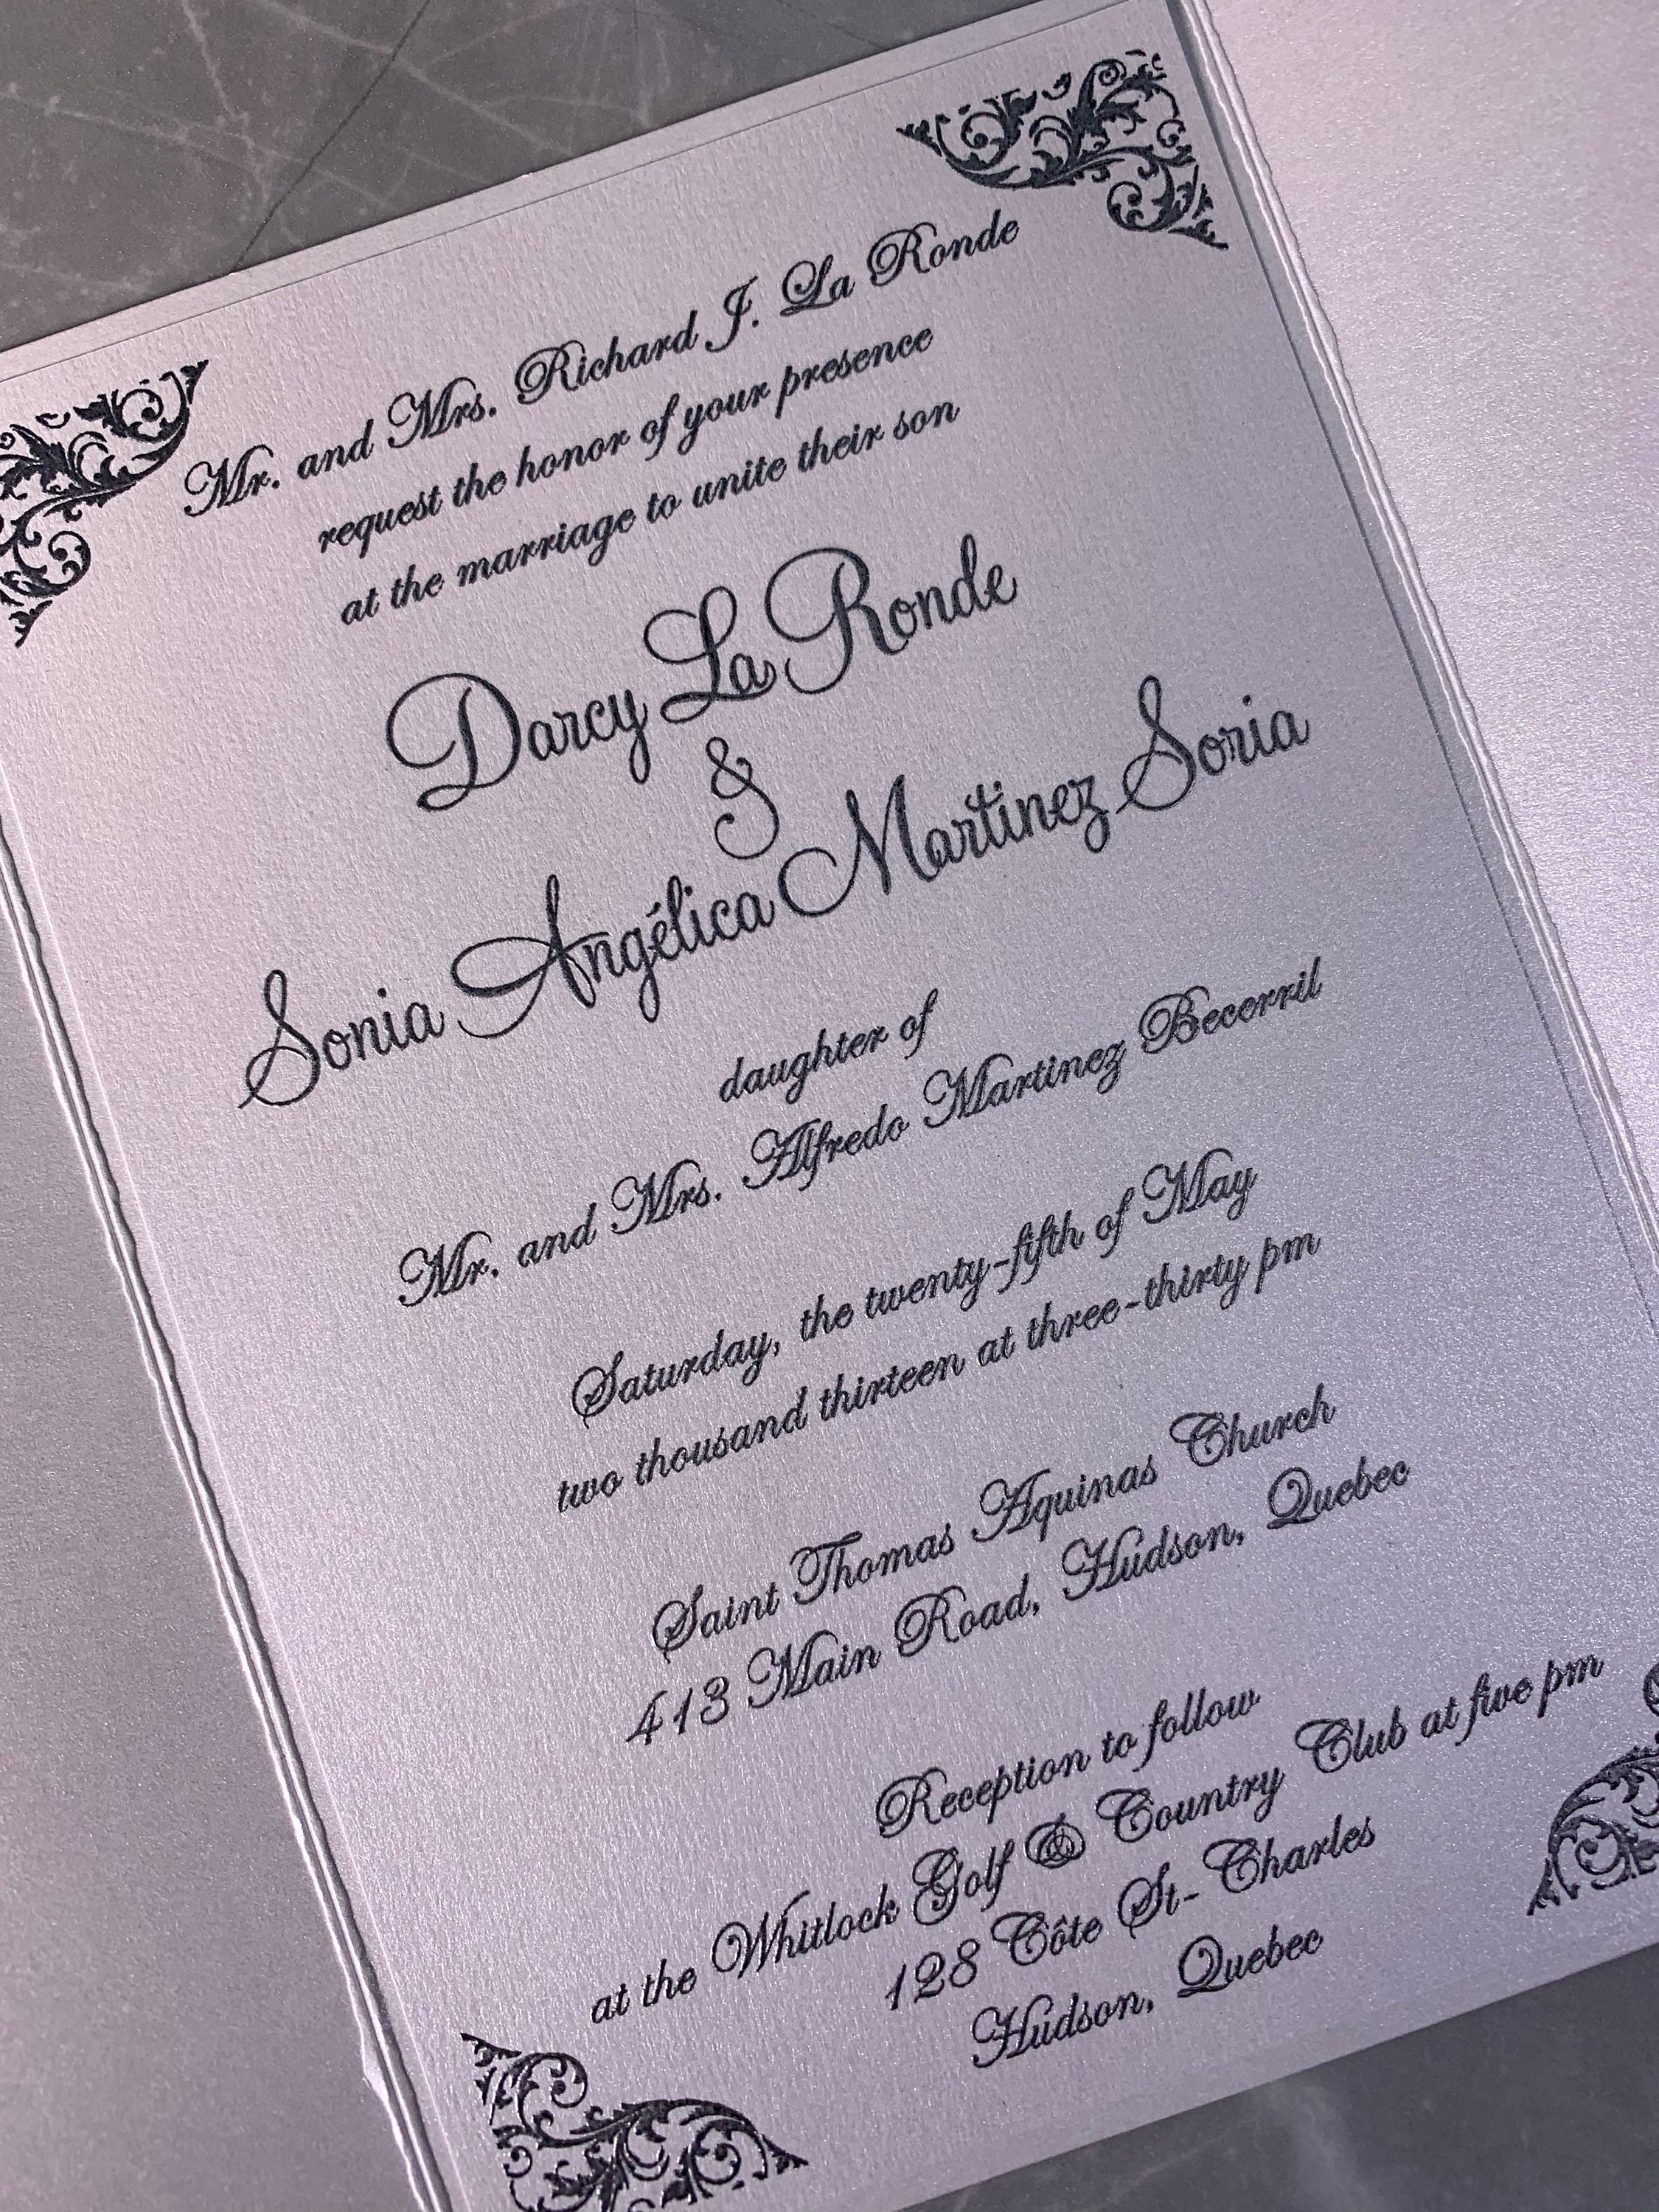 Mr. and Mrs. Richard J. La Ronde
request the honor of your presence
at the marriage to unite their son
Darcy La Ronde
&
Sonia Angélica Martinez Soria
daughter of
Mr. and Mrs. Alfredo Martinez Becerril
Saturday, the twenty-fifth of May
two thousand thirteen at three-thirty pm
Saint Thomas Aquinas Church
413 Main Road, Hudson, Quebec
Reception to follow
at the Whitlock Golf & Country Club at five pm
128 Côte St-Charles
Hudson, Quebec